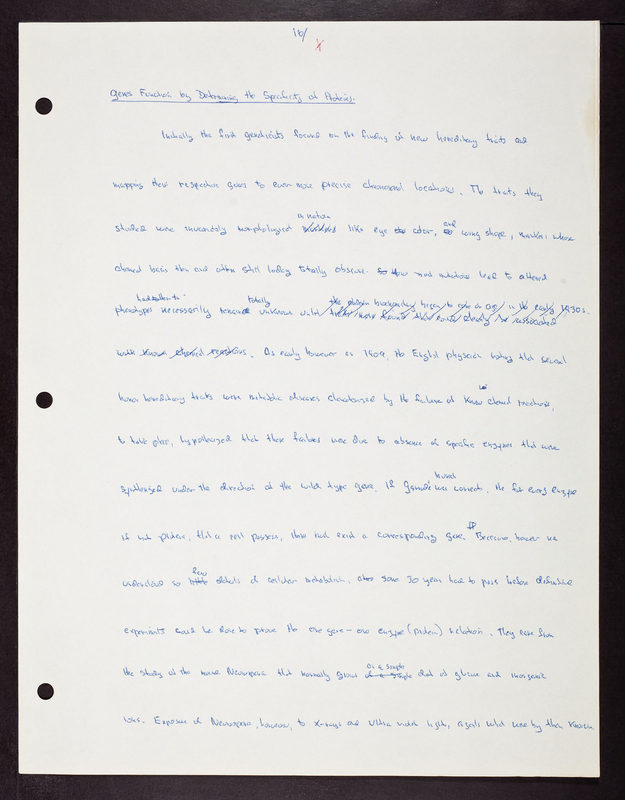 16/
Genes Function by Determining the Specificity of Proteins.
Initially the first geneticists focused on the finding of new hereditary traits and
mapping their respective genes to ever more precise chromosomal locations. The traits they
in nature
studied were invariably morphological like eye color, and wing shape, markers whose
chemical basis then and often still today totally obscure. So how most mutations lead to altered
totally
phenotypes necessarily remained unknown until the early 1930s.
with known chemical reactions. As early however as 1909, the English physician noting that several
human hereditary traits were metabolic diseases characterized by the failure of known chemical reactions,
to take place, hypothesized that these failures were due to absence of specific enzymes that were
synthesized under the direction of the wild type gene. If Garrod was correct, the for every enzyme
if not protein, that a cell possess, there must exist a corresponding gene. Because, however we
few
understood so little details of cellular metabolism, some 30 years had to pass before definitive
experiments could be done to prove the one gene - one enzyme (protein) relation. They came from
on a simple
the study of the mould Neurospora that normally grows of a simple diet of glucose and inorganic
ions. Exposure of Neurospora, however, to X-rays and ultra violet light, agents well known by then